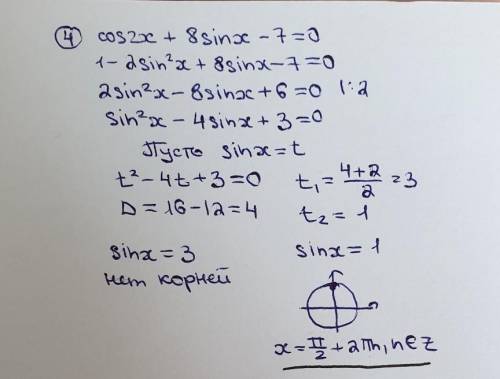 ④ cos2x + 8sinx - 7 = 0
1 - 2sin²x + 8sinx - 7 = 0
2sin²x - 8sinx + 6 = 0 |:2
sin²x - 4sinx + 3 = 0
Пусть sinx = t
t² - 4t + 3 = 0
D = 16 - 12 = 4
t₁ = (4+2)/2 = 3
t₂ = 1
sinx = 3
нет корней
sinx = 1
x = π/2 + 2πn, n∈Z